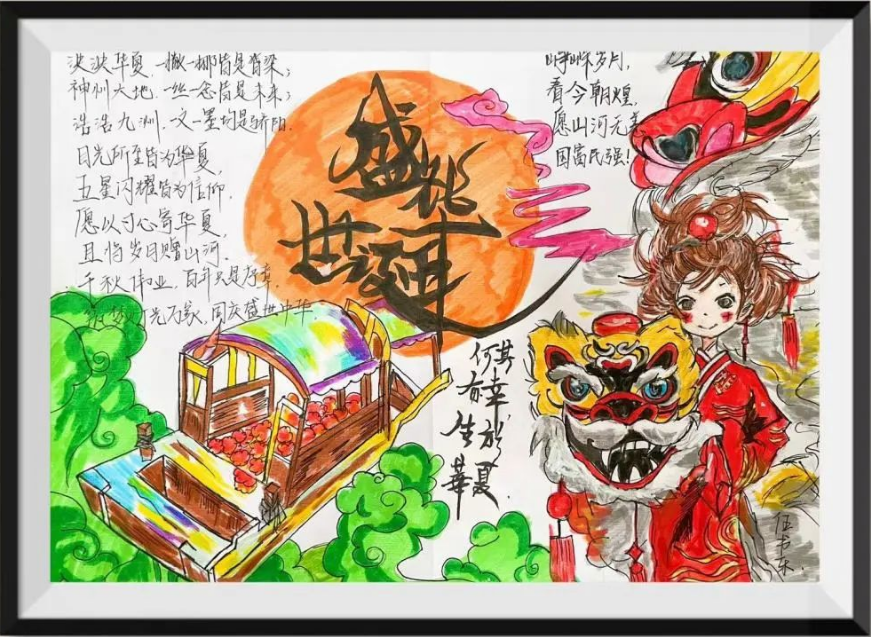 泱泱华夏,一撇一捺皆是脊梁;
神州大地,一丝一念皆是未来;
浩浩九洲,文一墨均是骄阳.
日光所至皆为华夏,
五星闪耀皆为信仰.
愿以寸心寄华夏,
且将岁月赠山河.
千秋伟业,百年只是序章,
灯光万家,同庆盛世中华
盛世
华
峥嵘岁月,
看今朝煌,
愿山河无恙
国富民强!
何其
有幸,
生於
華夏.